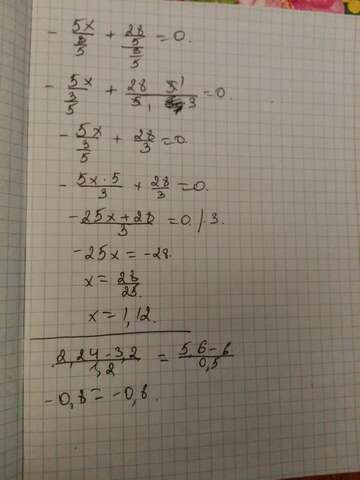 - 5x/(3/5) + (28/5)/(3/5) = 0.
- 5x/(3/5) + 28/5₁ · 5¹/3 = 0
- 5x/(3/5) + 28/3 = 0
- 5x·5/3 + 28/3 = 0.
(-25x+28)/3 = 0. /·3.
-25x = -28.
x = 28/25.
x = 1,12.
(2,24-3,2)/1,2 = (5,6-6)/0,5
-0,8 = -0,8.